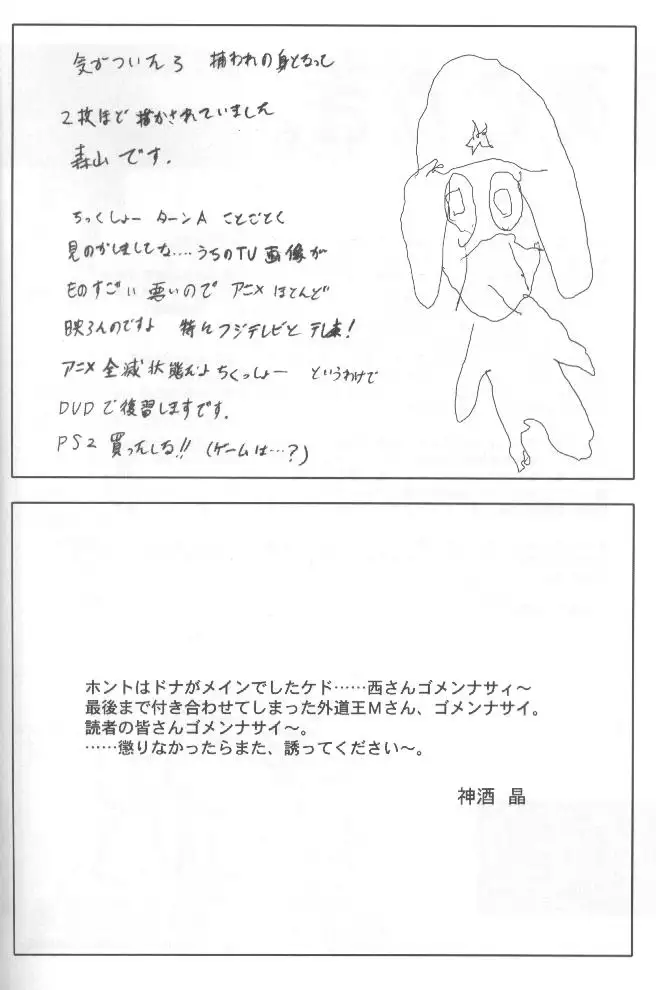 気がついたら 捕われの身となって
2枚ほど描かされていました
森山です.
ちっくしょー ターンA ことごとく
見のがしましてな....うちのTV画像が
ものすごい悪いので アニメほとんど
映らんのですよ 特にフジテレビとテレ東!
アニメ全滅状態だよちくっしょー というわけで
DVDで復習しますです.
PS2買ったしな!!(ゲームは…?)
ホントはドナがメインでしたケド……西さんゴメンナサィ〜
最後まで付き合わせてしまった外道王Mさん、ゴメンナサイ。
読者の皆さんゴメンナサイ〜。
……懲りなかったらまた、誘ってください〜。
神酒 晶